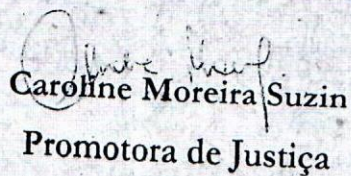 Caroline Moreira Suzin
Promotora de Justiça